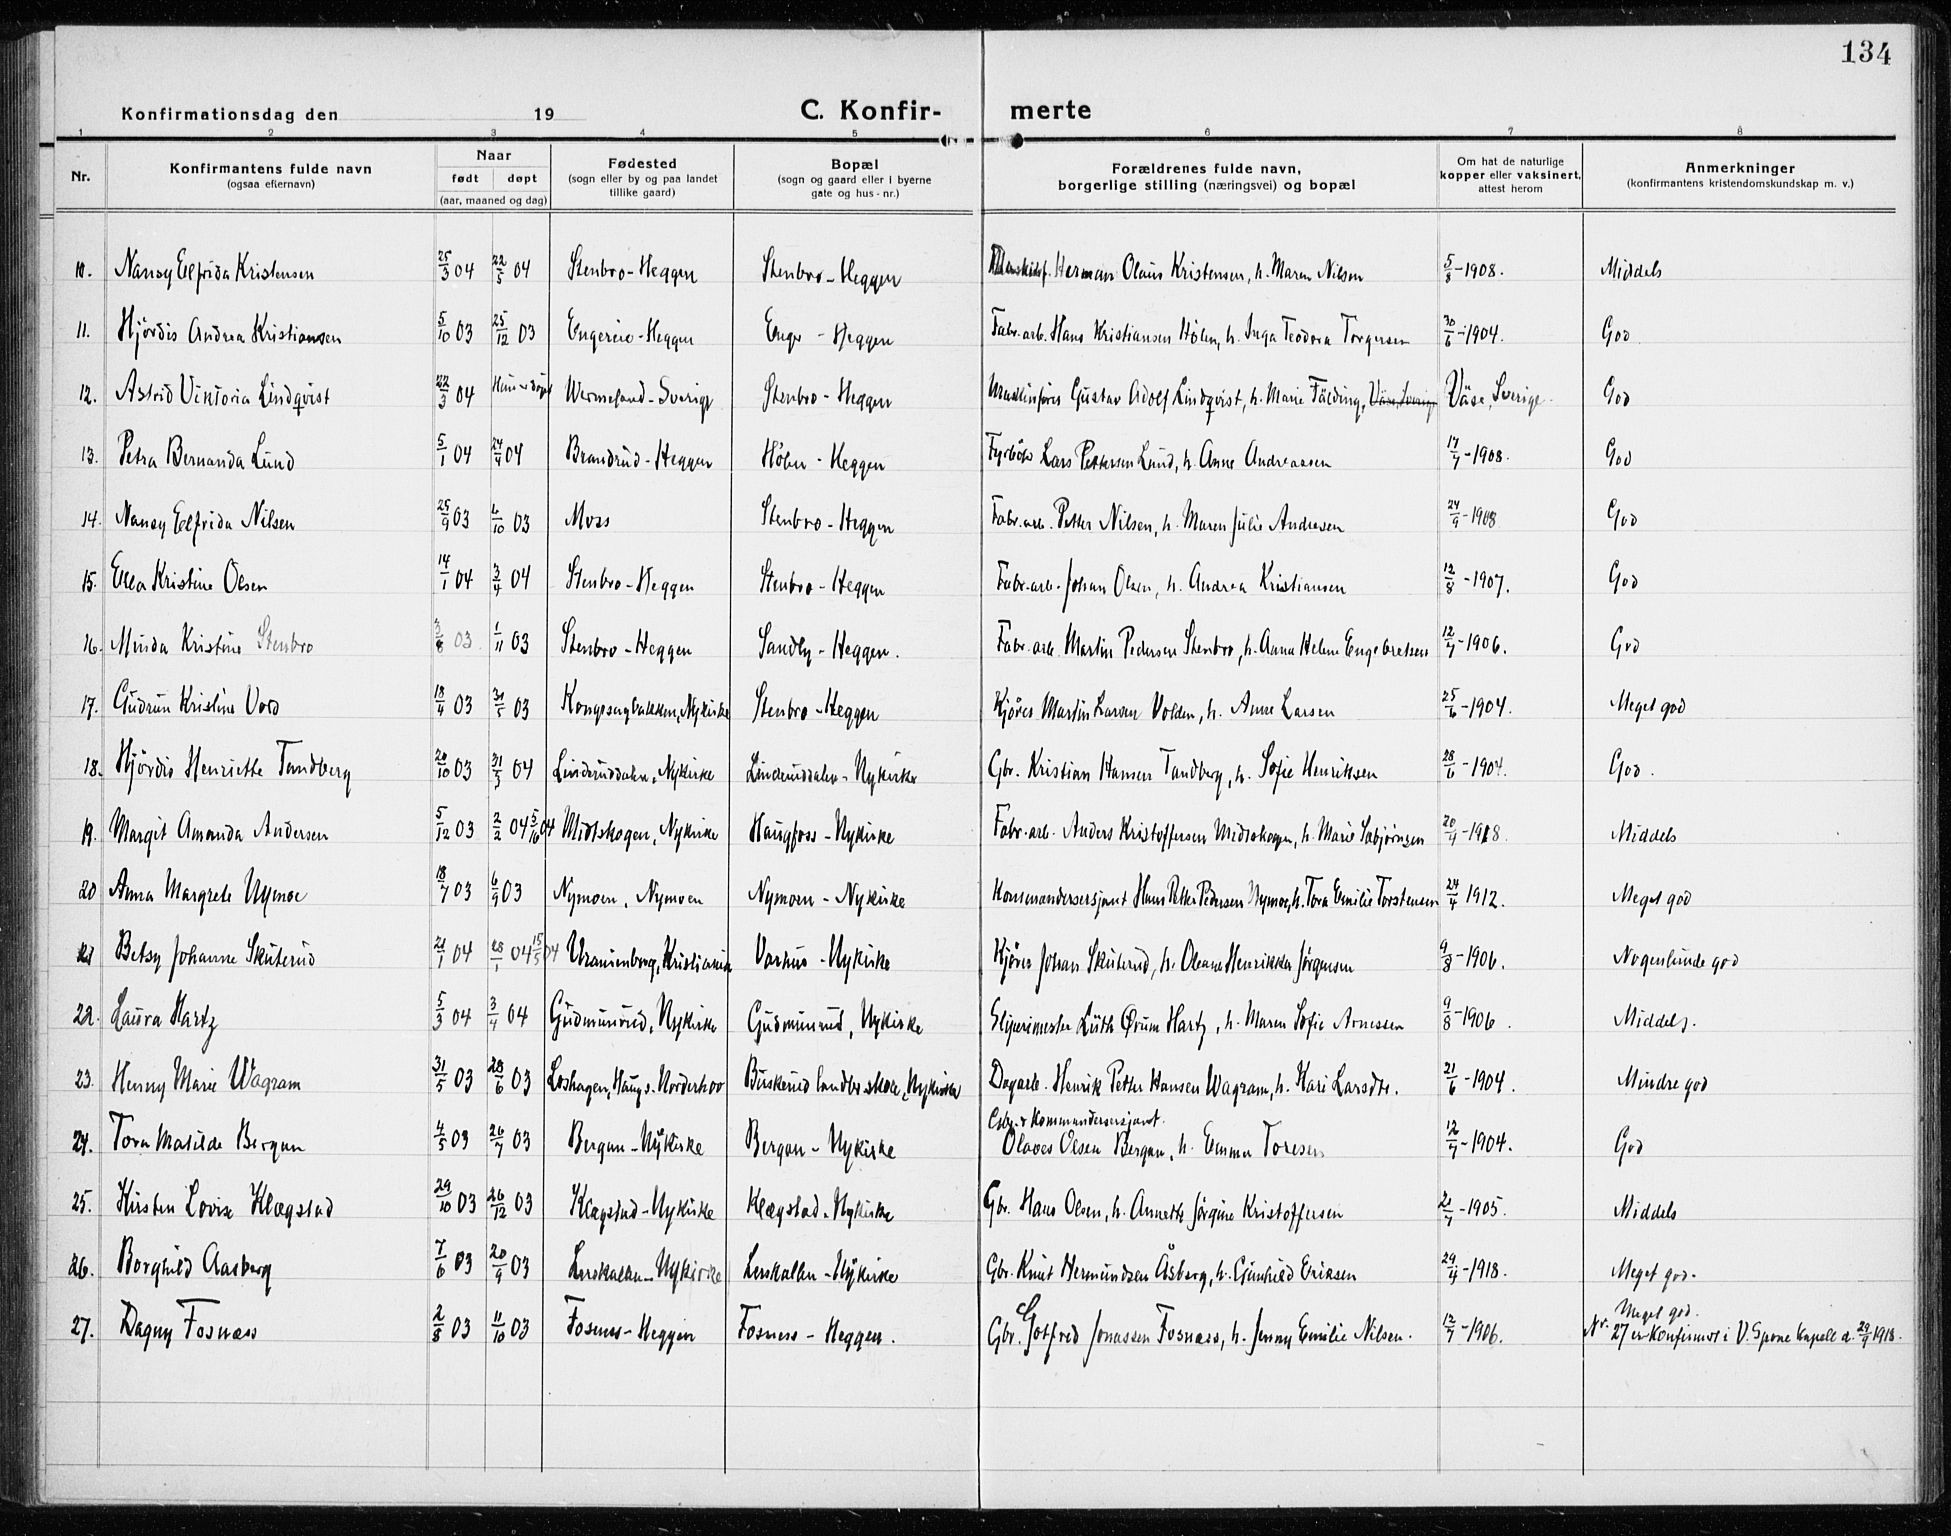 134
Konfirmationsdag den 19 C. Konfir- merte
1 2 3 4 5 6 7 8
Nr. Konfirmantens fulde navn (ogsaa efternavn) Naar født døpt (aar, maaned og dag) Fødested (sogn eller by og paa landet tillike gaard) Bopæl (sogn og gaard eller i byerne gate og hus-nr.) Forældrenes fulde navn, borgerlige stilling (næringsvei) og bopæl Om hat de naturlige kopper eller vaksinert, attest herom Anmerkninger (konfirmantens kristendomskundskap m. v.)
10. Nancy Elfrida Kristensen 25/3 04 22/5 04 Stenbro-Heggen Stenbro-Heggen Herman Olaus Kristensen, h. Maren Nilsen 5/8-1908. Middels
11. Hjördis Andrea Kristiansen 5/10 03 25/12 03 Engereie-Heggen Enger-Heggen Fabr.arb. Hans Kristiansen Hölen, h. Inga Teodora Torgersen 30/6-1904. God
12. Astrid Viktoria Lindqvist 22/3 04 Wermeland-Sverige Stenbro-Heggen Gustav Adolf Lindqvist, h. Marie Fälding, Väse, Sverige Väse, Sverige. God
13. Petra Bernanda Lund 5/1 04 24/4 04 Brandrud-Heggen Hölen-Heggen Fyrböter Lars Pettersen Lund, h. Anne Andreassen 17/7-1908. God
14. Nancy Elfrida Nilsen 25/9 03 6/10 03 Moss Stenbro-Heggen Fabr.arb. Petter Nilsen, h. Maren Julie Andresen 24/9-1908 God
15. Ella Kristine Olsen 14/1 04 3/4 04 Stenbro-Heggen Stenbro-Heggen Fabr.arb. Johan Olsen, h. Andrea Kristiansen 12/8-1907. God
16. Minda Kristine Stenbro 3/8 03 1/11 03 Stenbro-Heggen Sandby-Heggen. Fabr.arb. Martin Pedersen Stenbro, h. Anna Helene Engebretsen 12/7-1906. God
17. Gudrun Kristine Vold 18/4 03 31/5 03 Nykirke Stenbro-Heggen Kjörer Martin Larsen Volden, h. Anne Larsen 25/6-1904. Meget god
18. Hjördis Henriette Tandberg 20/10 03 31/3 04 Linderuddalen, Nykirke Linderuddalen-Nykirke Gbr. Kristian Hansen Tandberg, h. Sofie Henriksen 28/6-1904. God.
19. Margit Amanda Andersen 5/12 03 2/2 04 5/10 04 Midtskogen, Nykirke Haugfoss-Nykirke Fabr.arb. Anders Kristoffersen Midtskogen, h. Marie Sabjörnsen 20/9-1918. Middels
20 Anna Margrete Nymoe 18/7 03 6/9 03 Nymoen, Nymoen Nymoen-Nykirke Kommandersersjant Hans Petter Pedersen Nymoe, h. Tora Emilie Torstensen 24/4 1912. Meget god
21 Betsy Johanne Skuterud 21/1 04 28/1 04 15/5 04 Uranienborg, Kristiania Varhus-Nykirke Kjörer Johan Skuterud, h. Oleane Henrikke Jörgensen 9/8-1906. Nogenlunde god
22. Laura Hartz 5/3 04 3/4 04 Gudmunrud, Nykirke Gudmunrud, Nykirke Sliperimester Lüth Örum Hartz, h. Maren Sofie Arnessen 9/8-1906. Middels.
23. Henny Marie Wagram 31/5 03 28/6 03 Loshagen, Haugs-Norderhov Buskerud landbr.skole, Nykirke Dagarb. Henrik Petter Hansen Wagram, h. Kari Larsdtr. 21/6-1904. Mindre god
24. Tora Matilde Bergan 4/5 03 26/7 03 Bergan-Nykirke Bergan-Nykirke Gbr. & Kommandersersjant. Olaves Olsen Bergan, h. Emma Toresen 12/7-1904. God
25. Kirsten Lovise Klægstad 29/10 03 26/12 03 Klægstad-Nykirke Klægstad-Nykirke Gbr. Hans Olsen, h. Annette Jörgine Kristoffersen 21/7-1905. Middels
26. Borghild Aasberg 7/6 03 20/9 03 Lerskallen-Nykirke Lerskallen-Nykirke Gbr. Knut Hermundsen Åsberg, h. Gunhild Eriksen 29/4-1918. Meget god.
27. Dagny Fosnæss 2/8 03 11/10 03 Fosness-Heggen Fosness-Heggen. Gbr. Gotfred Jonassen Fosnæss, h. Jenny Emilie Nilsen. 12/7-1906. Meget god. Nr. 27 er konfirmert i V. Spone kapell d. 29/9 1918.